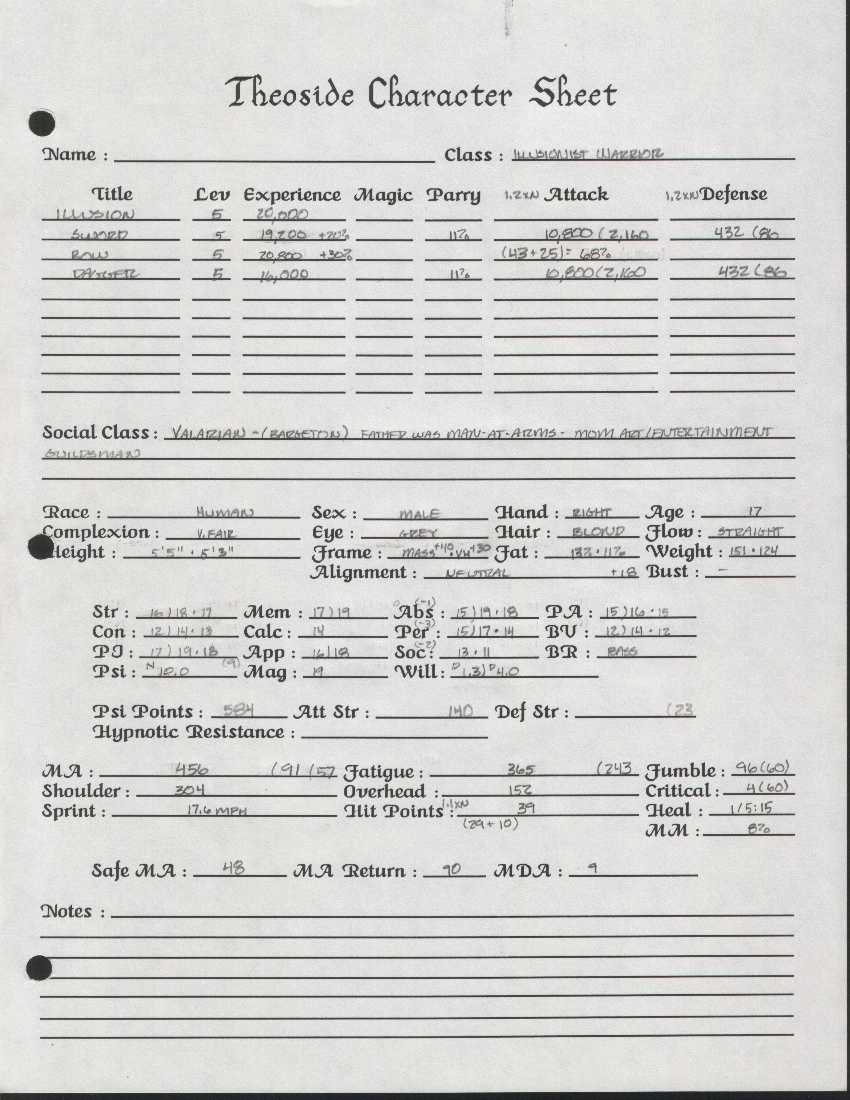 Theoside Character Sheet
Name : Class : ILLUSIONIST WARRIOR
Title Lev Experience Magic Parry 1.2xN Attack 1.2xN Defense
ILLUSION 5 20,000
SWORD 5 19,200 +20% 11% 10,800 (2,160 432 (86
BOW 5 20,800 +30% (43+25)= 68%
DAGGER 5 16,000 11% 10,800 (2,160 432 (86
Social Class : VALARIAN - (BARGETON) FATHER WAS MAN-AT-ARMS - MOM ART/ENTERTAINMENT
GUILDSMAN
Race : HUMAN Sex : MALE Hand : RIGHT Age : 17
Complexion : V. FAIR Eye : GREY Hair : BLOND Flow : STRAIGHT
Height : 5'5" · 5'3" Frame : MASS +40 · VH +30 Fat : 13% · 11% Weight : 151 · 124
Alignment : NEUTRAL +18 Bust : -
Str : 16)18 · 17 Mem : 17)19 Abs : (-1) 15)19 · 18 PA : 15)16 · 15
Con : 12)14 · 13 Calc : 14 Per : (-3) 15)17 · 14 BV : 12)14 · 12
PI : 17)19 · 18 (9) App : 16)18 Soc : (-2) 13 · 11 BR : BASS
Psi : N 12.0 Mag : 19 Will : D 1.3) D 4.0
Psi Points : 584 Att Str : 140 Def Str : (23
Hypnotic Resistance :
MA : 456 (91 (57 Fatigue : 365 (243 Fumble : 96(60)
Shoulder : 304 Overhead : 152 Critical : 4(60)
Sprint : 17.6 MPH Hit Points : 1.1xN 39 Heal : 1/5:15
(29+10) MM : 8%
Safe MA : 48 MA Return : 90 MDA : 9
Notes :